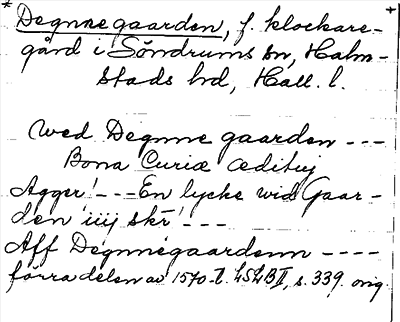 * Degnnegaarden, f. klockare-
gård i Söndrums sn, Halm-
stads hd, Hall. l.
wed Degnne gaarden ---
Bona Curiæ ædituj
Agger! --- En lycke wid Gaar-
den iiij skr! ---
Aff Degnnegaardenn ----
förra delen av 1570-t. LSLB II, s. 339. orig.